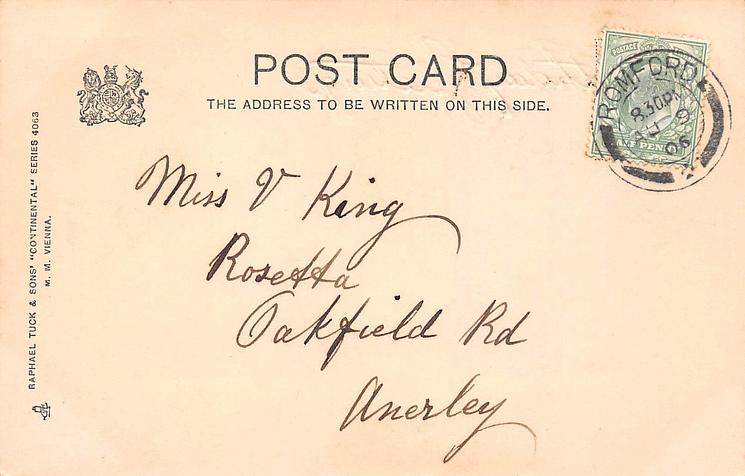 POST CARD
THE ADDRESS TO BE WRITTEN ON THIS SIDE.
POSTAGE
ROMFORD
8.30 PM
AU
05
2
Miss V King
Rosetta
Oakfield Rd
Anerley
RAPHAEL TUCK & SONS' "CONTINENTAL" SERIES 4063
M. M. VIENNA.